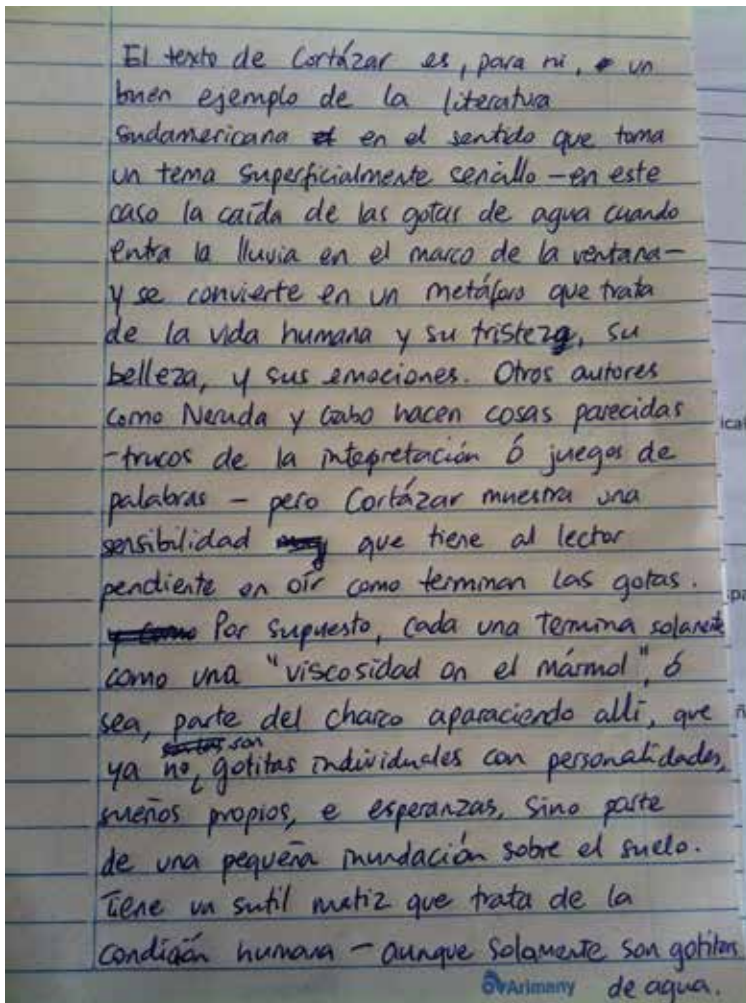 El texto de Cortázar es, para mi, un
buen ejemplo de la literatura
sudamericana en el sentido que toma
un tema superficialmente sencillo – en este
caso la caída de las gotas de agua cuando
entra la lluvia en el marco de la ventana –
y se convierte en un metáforo que trata
de la vida humana y su tristeza, su
belleza, y sus emociones. Otros autores
como Neruda y Gabo hacen cosas parecidas
- trucos de la intepretación ó juegos de
palabras – pero Cortázar muestra una
sensibilidad que tiene al lector
pendiente en oír como terminan las gotas.
Por supuesto, cada una termina solamente
como una "viscosidad en el mármol", ó
sea, parte del charco aparaciendo allí, que
ya no son gotitas individuales con personalidades,
sueños propios, e esperanzas, sino parte
de una pequeña inundación sobre el suelo.
Tiene un sutil matiz que trata de la
condición humana – aunque solamente son gotitas
de agua.
Arimany
ical